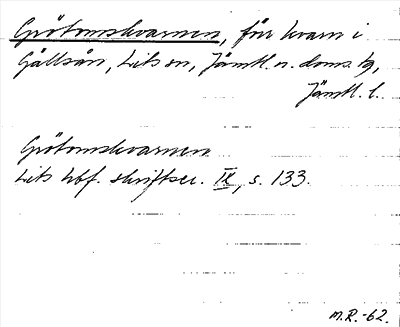 Grötomskvarnen,för kvarn i
Gällsån, Lits sn, Jämtl. n. doms. tg,
Jämtl. l.
Grötomskvarnen
Lits hbf. skriftser. IX, s. 133.
M.R.-62.